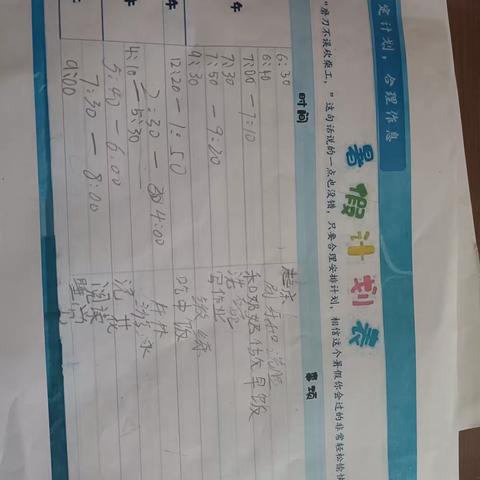 定计划，合理作息
暑假计划表
"磨刀不误砍柴工，"这句话说的一点也没错，只要合理安排计划，相信这个暑假你会过的非常轻松愉快
时间
事项
6:30
起床
6:40
刷牙和洗脸
7:00-7:10
和奶奶做早饭
7:30
7:50-9:20
写作业
9:30
12:20-1:50
吃中饭
2:30-4:00
午休
4:10-5:30
游泳
5:40-6:00
洗
7:30-8:00
阅读
9:00
睡觉
午
午